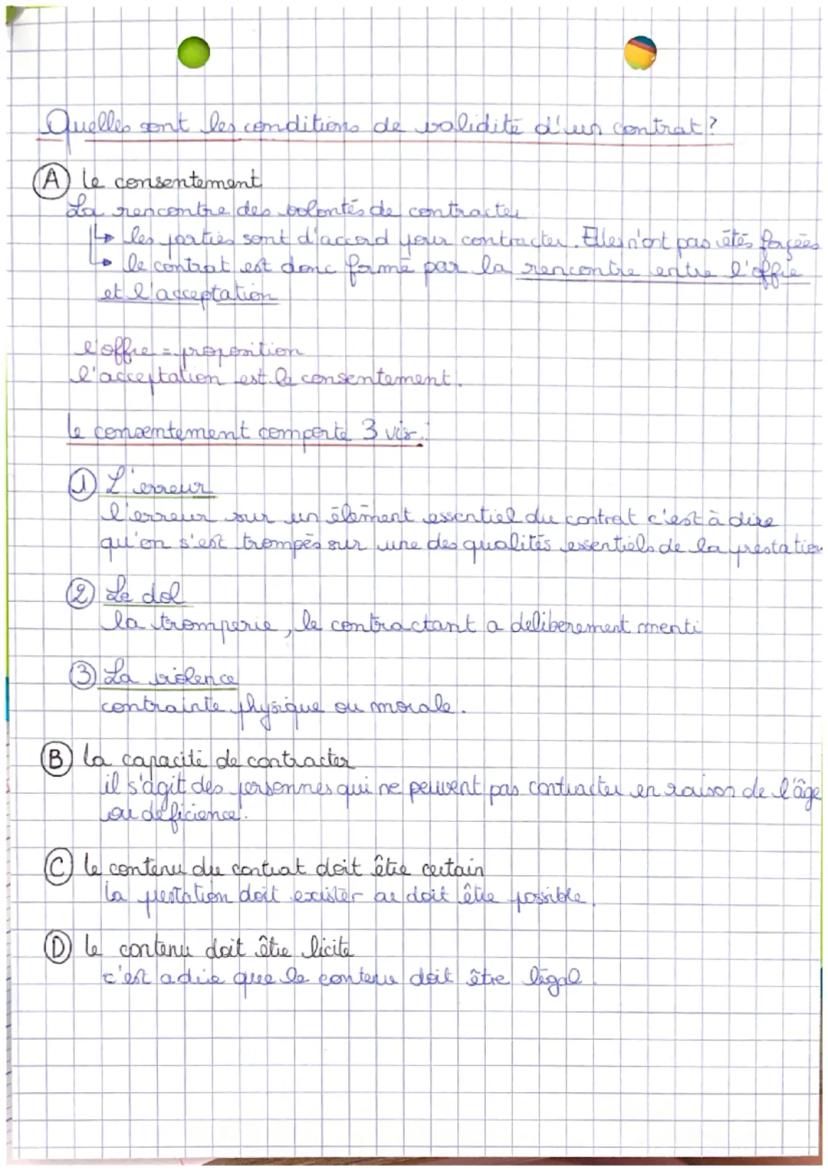 Quelles sont les conditions de validité d'un contrat ?
A le consentement
La rencontre des volontés de contracter
↳ les parties sont d'accord pour contracter. Elles n'ont pas étés forçées
↳ le contrat est donc formé par la rencontre entre l'offre
et l'acceptation
l'offre = proposition
l'acceptation est le consentement.
le consentement comporte 3 vis :
1 L'erreur
l'erreur sur un élément essentiel du contrat c'est à dire
qu'on s'est trompés sur une des qualités essentiels de la prestation
2 Le dol
la tromperie, le contractant a deliberement menti
3 La violence
contrainte physique ou morale.
B la capacité de contracter
il s'agit des personnes qui ne peuvent pas contracter en raison de l'âge
ou déficience.
C le contenu du contrat doit être certain
la prestation doit exister ou doit être possible.
D le contenu doit être licite
c'est adire que le contenu doit être légal.